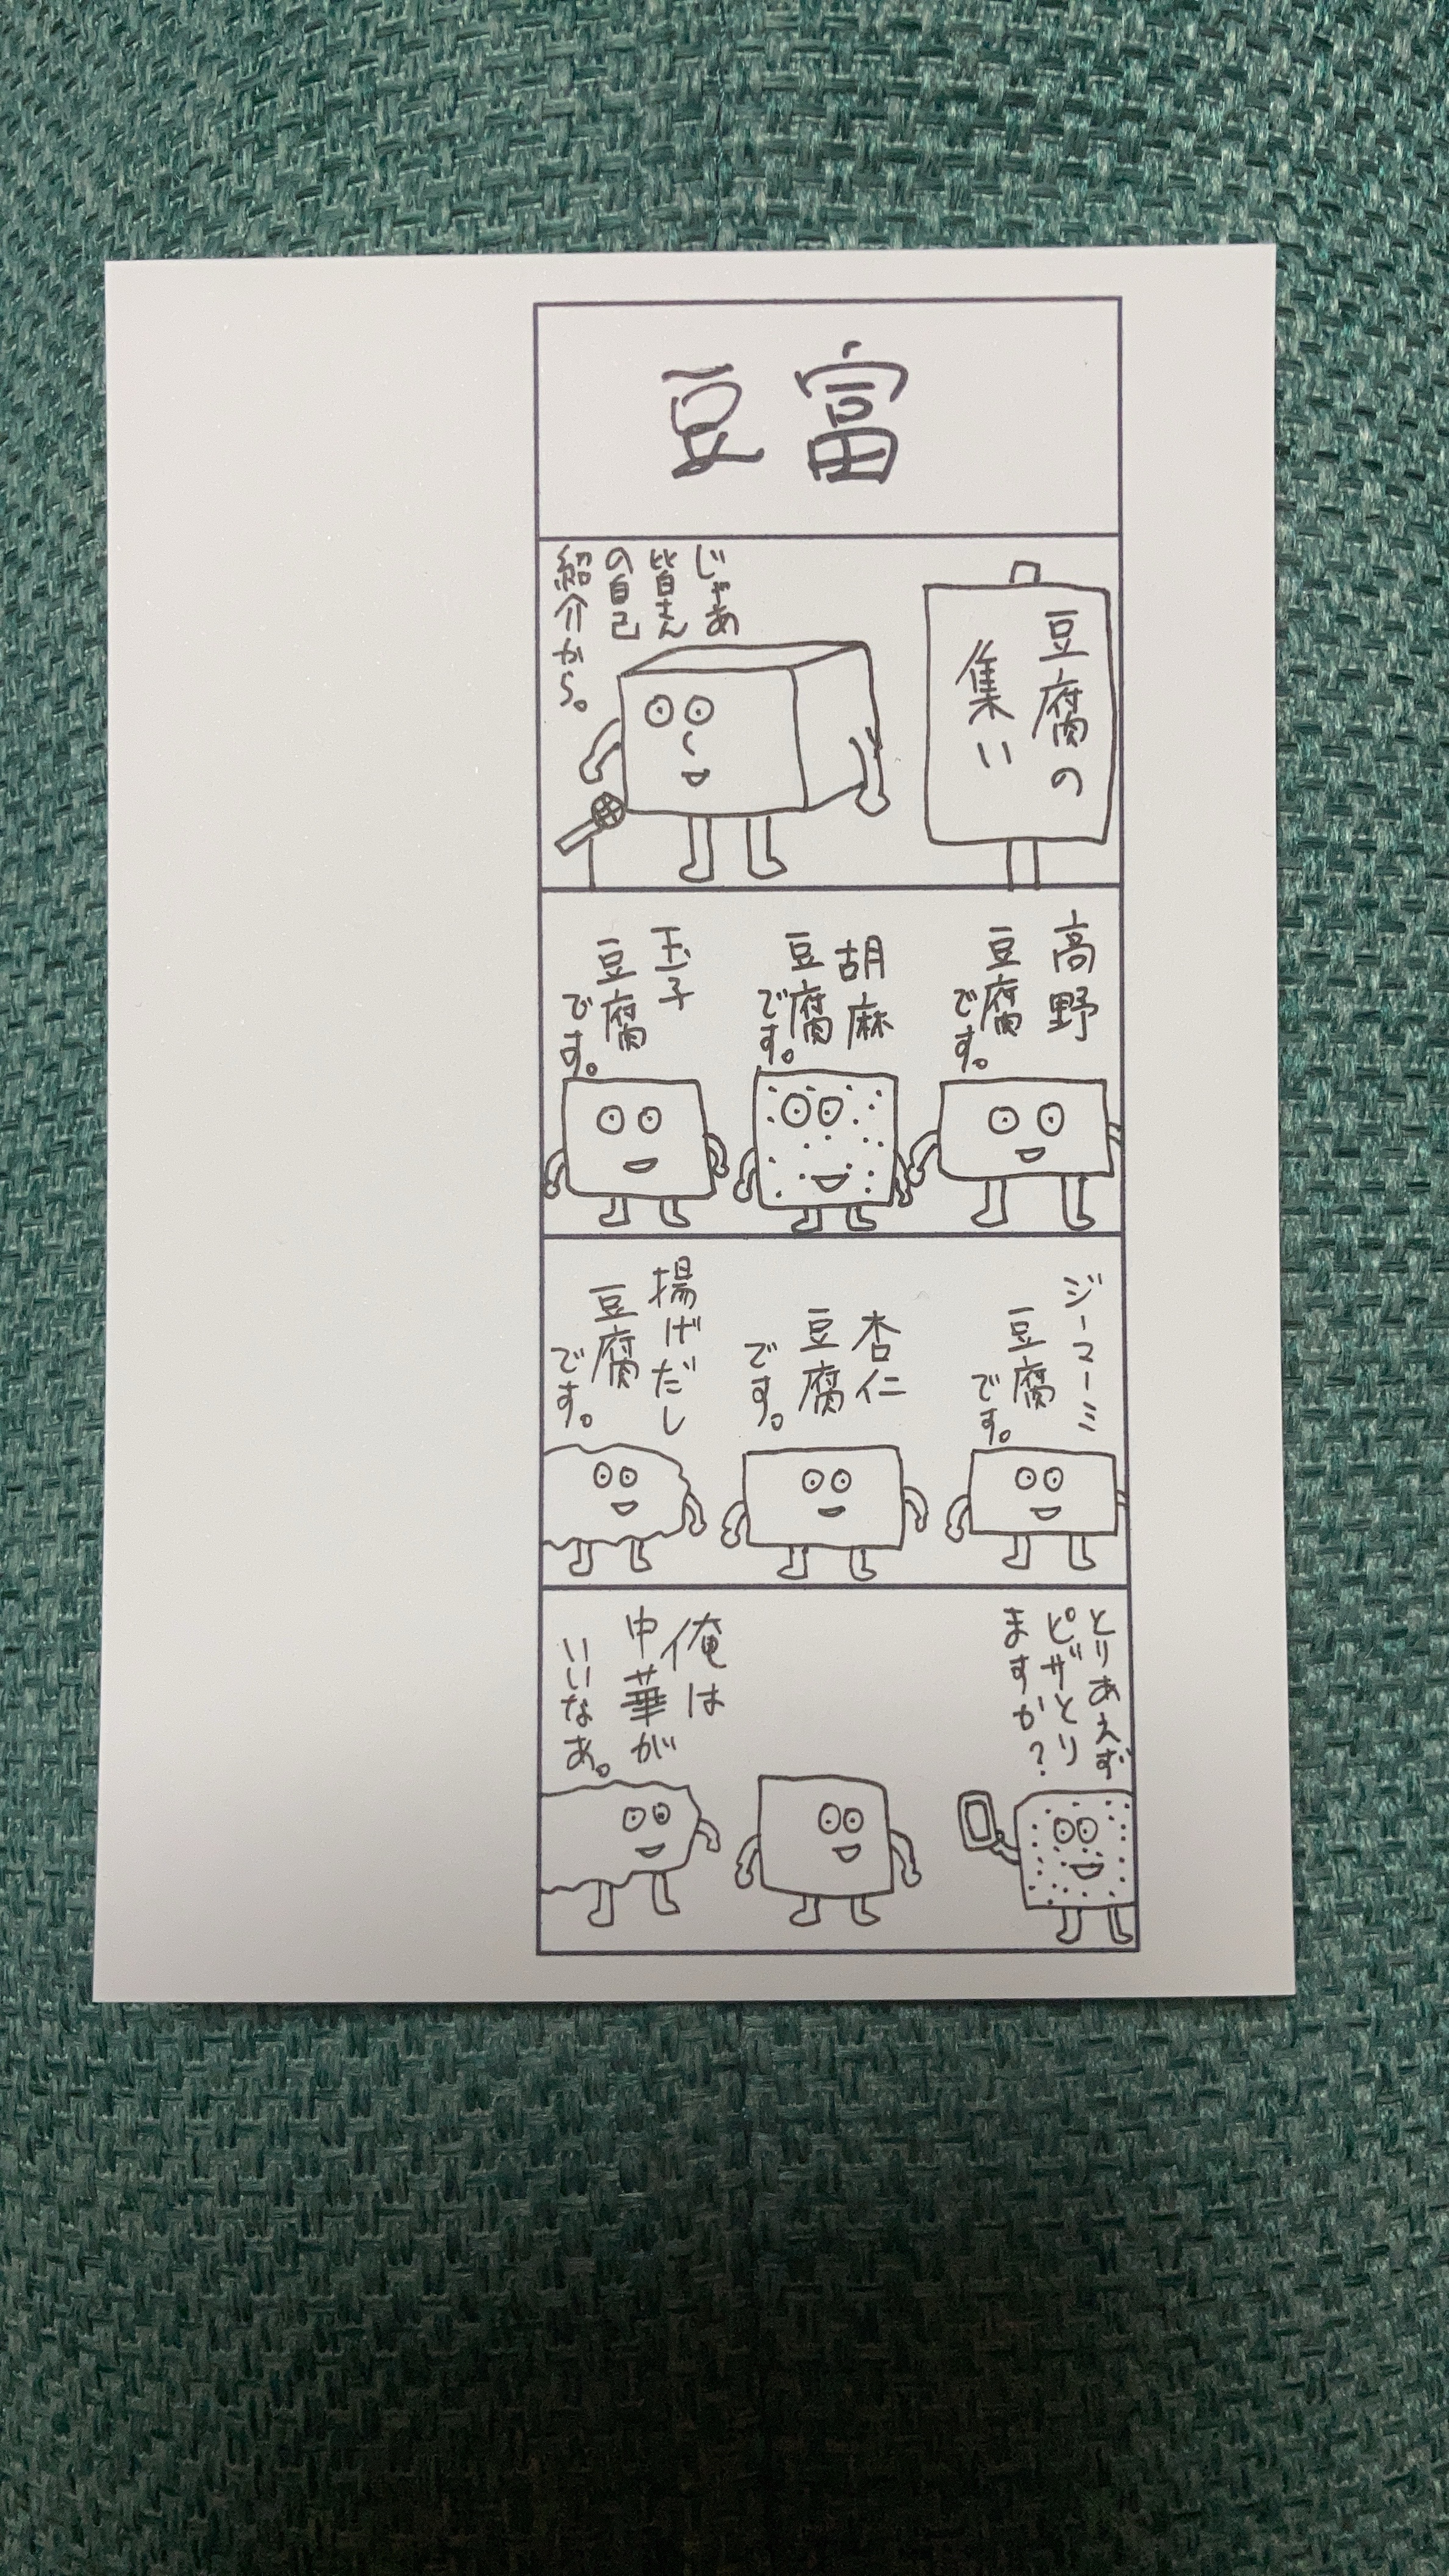 豆富
豆腐の
集い
じゃあ
皆さん
の自己
紹介から。
高野
豆腐
です。
胡麻
豆腐
です。
玉子
豆腐
です。
ジーマーミ
豆腐
です。
杏仁
豆腐
です。
揚げだし
豆腐
です。
とりあえず
ピザとり
ますか?
俺は
中華が
いいなあ。